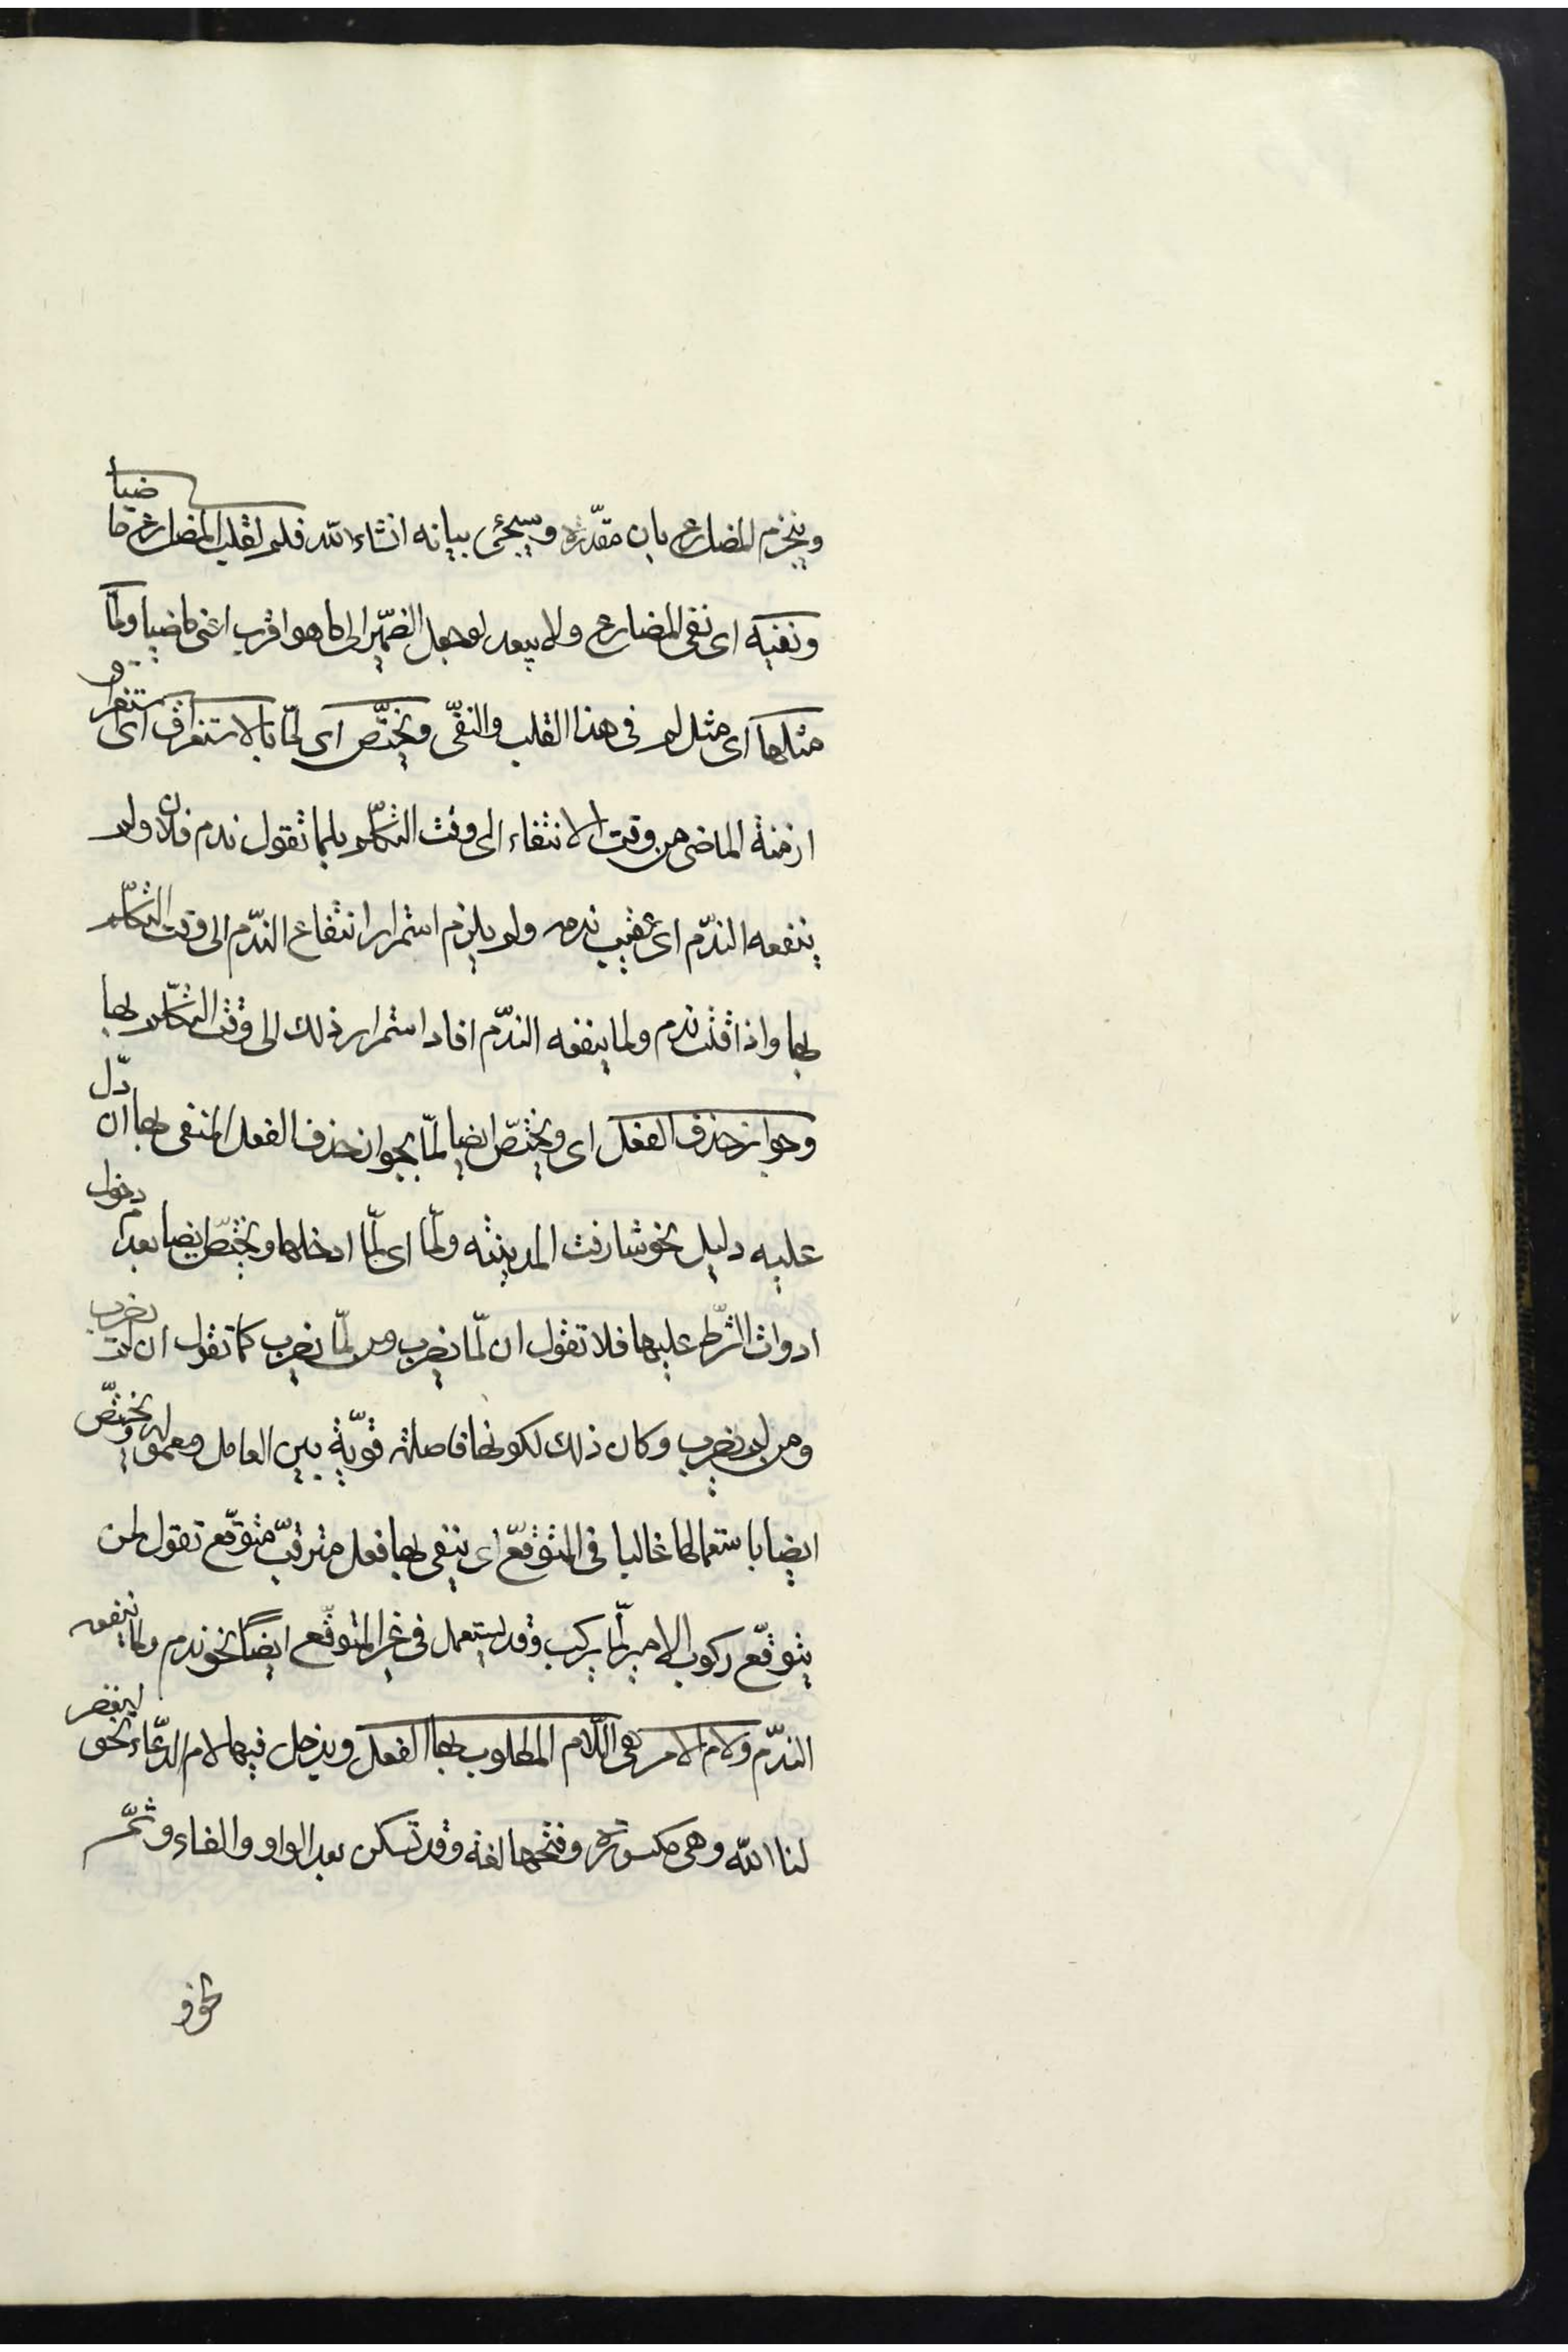 وينجزم المضارع بان مقدّرة وسيجئ بيانه انشاء الله فلم لقلب المضارع ماضيا
ونفيه اى نفى المضارع ولا يبعد لو جعل الضمير الى ما هو اقرب اعنى ماضيا ولمّا
مثلها اى مثل لم فى هذا القلب والنفى ويختصّ اى لمّا بالاستغراق اى
ازمنة الماضى من وقت الانتفاء الى وقت التكلّم بلما تقول ندم فلان ولم
ينفعه الندّم اى عقيب ندمه ولم يلزم استمرار انتفاع الندّم الى وقت التكلّم
بها واذا قلت ندم ولما ينفعه الندّم افاد استمرار ذلك الى وقت التكلّم بها
وجواز حذف الفعل اى ويختصّ ايضا لمّا بجواز حذف الفعل المنفى بها ان دّل
عليه دليل نحو شارفت المدينته ولمّا اى لمّا ادخلها ويختصّ ايضا بعدم دخول
ادوات الشّرط عليها فلا تقول ان لمّا يضرب ومن لمّا يضرب كما تقول ان لم يضرب
ومن لم يضرب وكان ذلك لكونها فاصلة قويّة بين العامل ومعموله ويختصّ
ايضا باستعمالها غالبا فى المتوقّع اى ينفى بها فعل مترقّب متوقّع تقول لمن
يتوقّع ركوب الامير لمّا يركب وقد يستعمل فى غير المتوقّع ايضاً نحو ندم ولما ينفعه
الندّم ولام الامر هى اللّام المطلوب بها الفعل ويدخل فيها لام الدّعاء نحو ليغفر
لنا الله وهى مكسورة وفتحها لغة وقد تسكن بعد الواو والفاء وثمّ
نحو و